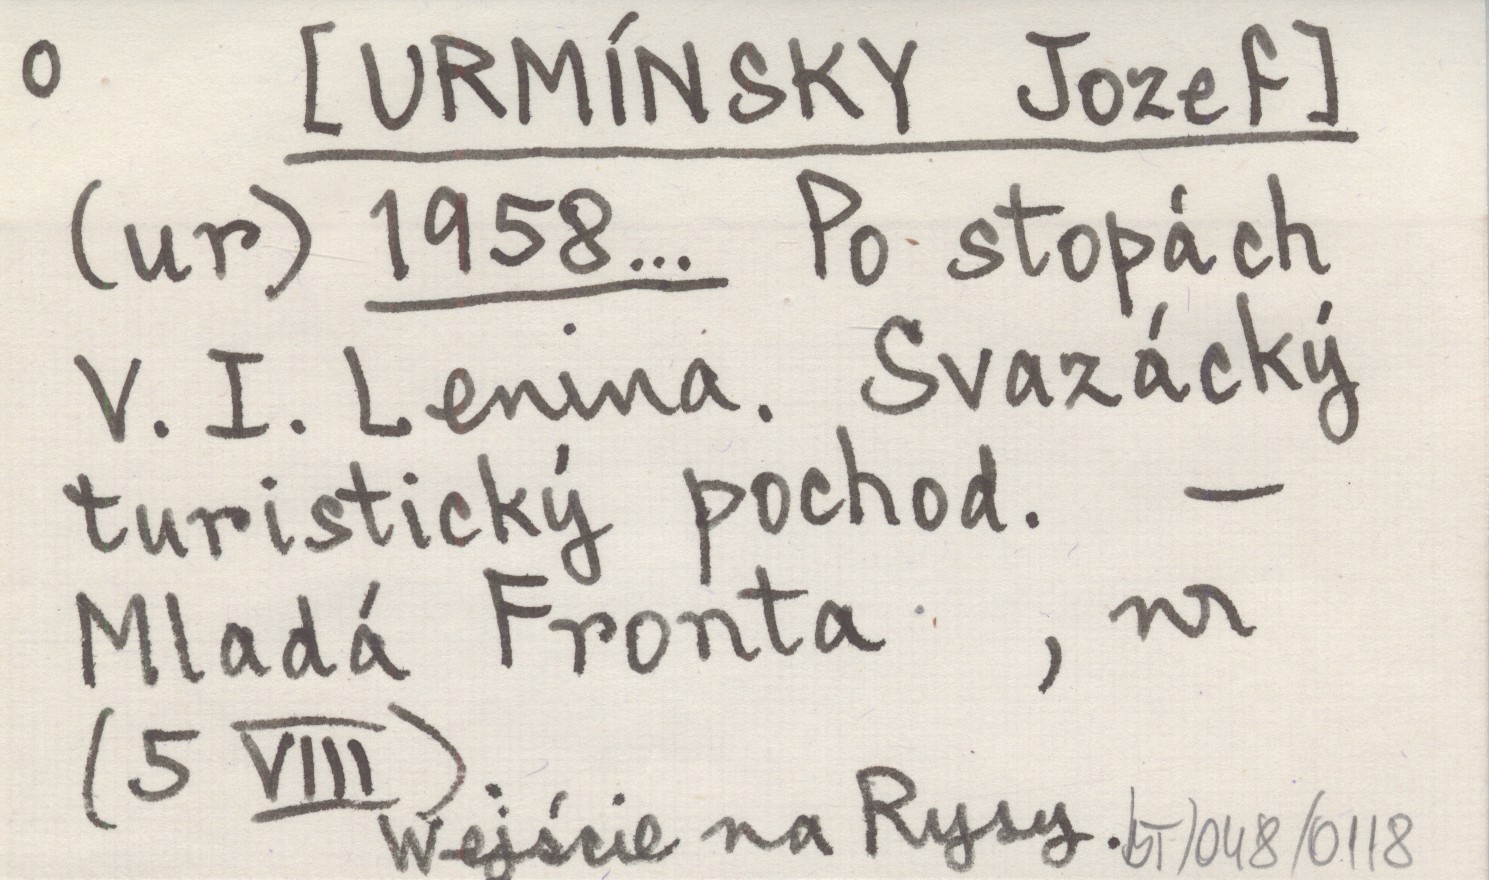 o [URMÍNSKY Jozef]
(ur) 1958... Po stopách
V. I. Lenina. Svazácký
turistický pochod. —
Mladá Fronta , nr
(5 VIII)
Wejście na Rysy. bT/048/0118